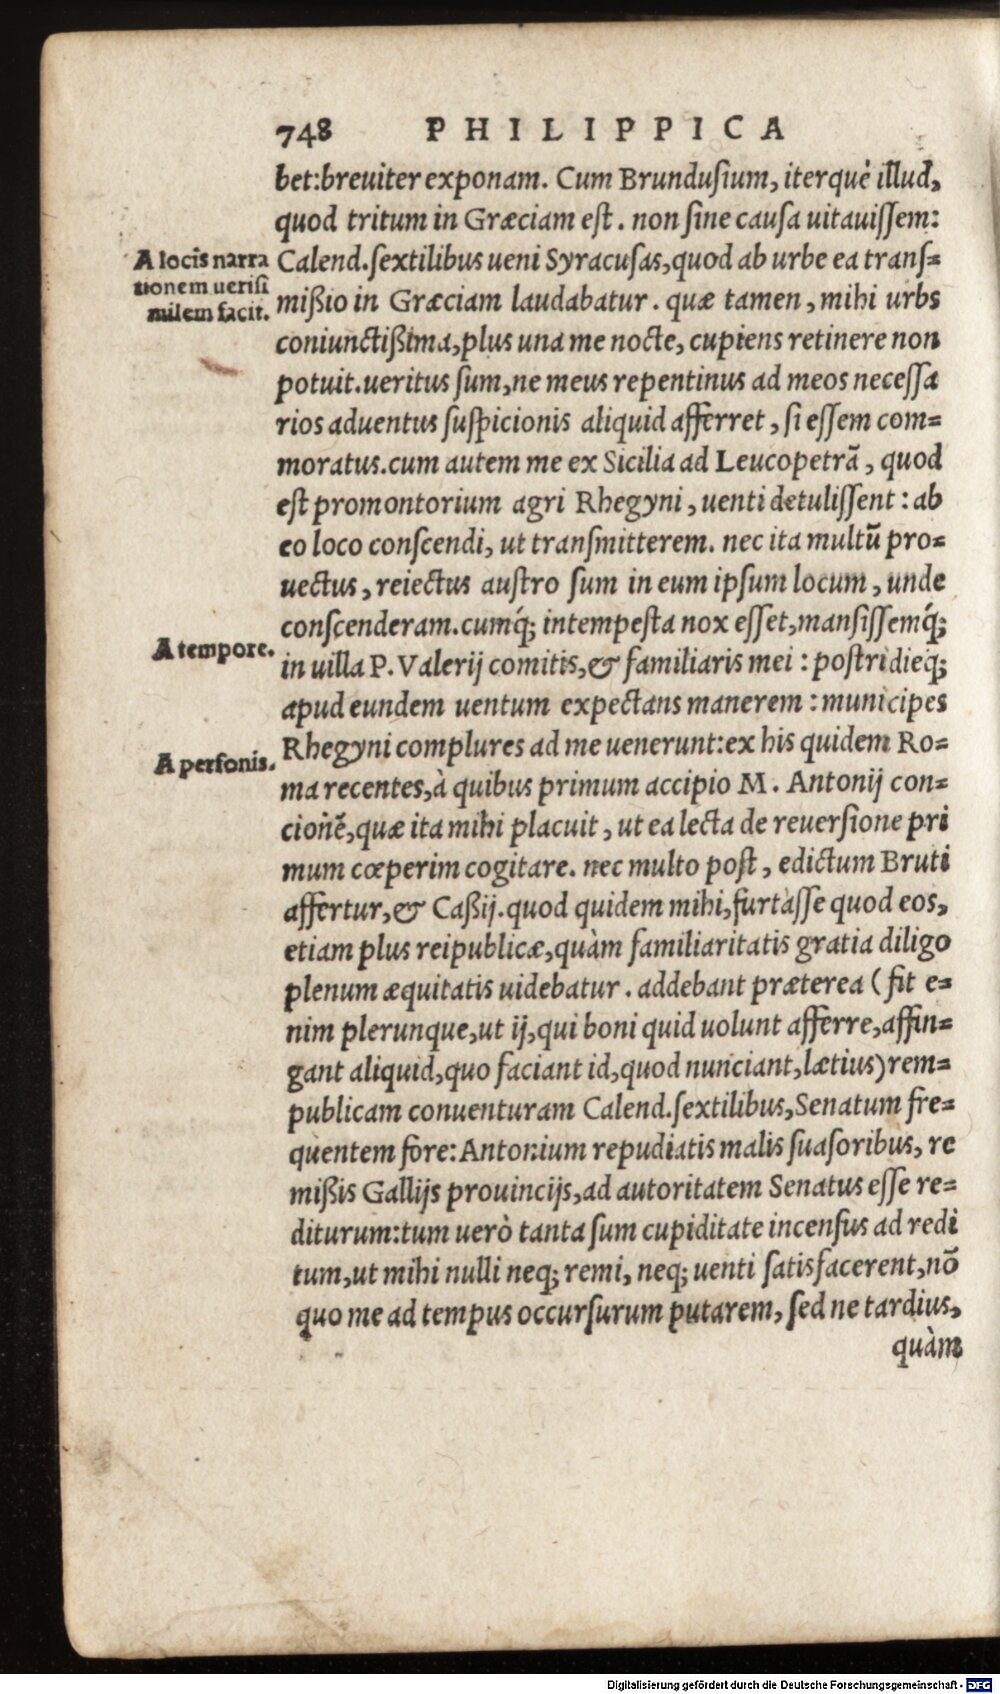 748 PHILIPPICA
bet:breuiter exponam. Cum Brundusium, iterquè illud,
quod tritum in Græciam est. non sine causa uitauissem:
A locis narra
tionem uerisi
milem facit.
Calend.sextilibus ueni Syracusas,quod ab urbe ea trans=
mißio in Græciam laudabatur. quæ tamen, mihi urbs
coniunctißima,plus una me nocte, cupiens retinere non
potuit.ueritus sum,ne meus repentinus ad meos necessa
rios aduentus suspicionis aliquid afferret, si essem com=
moratus.cum autem me ex Sicilia ad Leucopetrã, quod
est promontorium agri Rhegyni, uenti detulissent: ab
eo loco conscendi, ut transmitterem. nec ita multũ pro=
uectus, reiectus austro sum in eum ipsum locum, unde
conscenderam.cumq́; intempesta nox esset,mansissemq́;
A tempore.
in uilla P. Valerij comitis,& familiaris mei: postridieq́;
apud eundem uentum expectans manerem: municipes
A personis.
Rhegyni complures ad me uenerunt:ex his quidem Ro=
ma recentes,à quibus primum accipio M. Antonij con=
cionẽ,quæ ita mihi placuit, ut ea lecta de reuersione pri
mum cœperim cogitare. nec multo post, edictum Bruti
affertur,& Caßij.quod quidem mihi,furtasse quod eos,
etiam plus reipublicæ,quàm familiaritatis gratia diligo
plenum æquitatis uidebatur. addebant præterea (fit e=
nim plerunque,ut ij,qui boni quid uolunt afferre,affin=
gant aliquid,quo faciant id,quod nunciant,lætius) rem=
publicam conuenturam Calend.sextilibus,Senatum fre=
quentem fore:Antonium repudiatis malis suasoribus, re
mißis Gallijs prouincijs,ad autoritatem Senatus esse re=
diturum:tum uerò tanta sum cupiditate incensus ad redi
tum,ut mihi nulli neq; remi, neq; uenti satisfacerent,nõ
quo me ad tempus occursurum putarem, sed ne tardius,
quàm
Digitalisierung gefördert durch die Deutsche Forschungsgemeinschaft - DFG